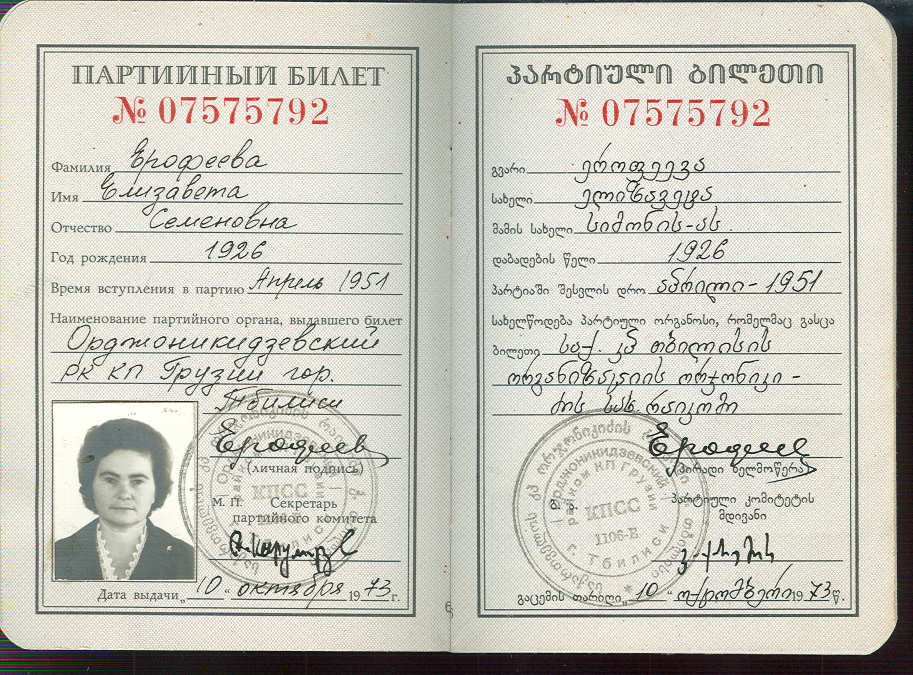 ПАРТИЙНЫЙ БИЛЕТ
№ 07575792
Фамилия Ерофеева
Имя Елизавета
Отчество Семеновна
Год рождения 1926
Время вступления в партию Апрель 1951
Наименование партийного органа, выдавшего билет
Орджоникидзевский
РК КП Грузии гор.
Тбилиси
(личная подпись)
М. П. Секретарь
партийного комитета
КПСС
Дата выдачи „10“ октября 1973 г.
პარტიული ბილეთი
№ 07575792
გვარი ეროფეევა
სახელი ელიზავეტა
მამის სახელი სიმონის-ას.
დაბადების წელი 1926
პარტიაში შესვლის დრო აპრილი-1951
სახელწოდება პარტიული ორგანოსი, რომელმაც გასცა
ბილეთი საქ. კპ თბილისის
ორგანიზაციის ორჯონიკი-
ძის სახ. რაიკომი
(პირადი ხელმოწერა)
ბ. ა. პარტიული კომიტეტის
მდივანი
ОРДЖОНИКИДЗЕВСКИЙ
район КП Грузии
КПСС
1106-Е
г. Тбилиси
გაცემის თარიღი „10“ ოქტომბერი 1973 წ.
6